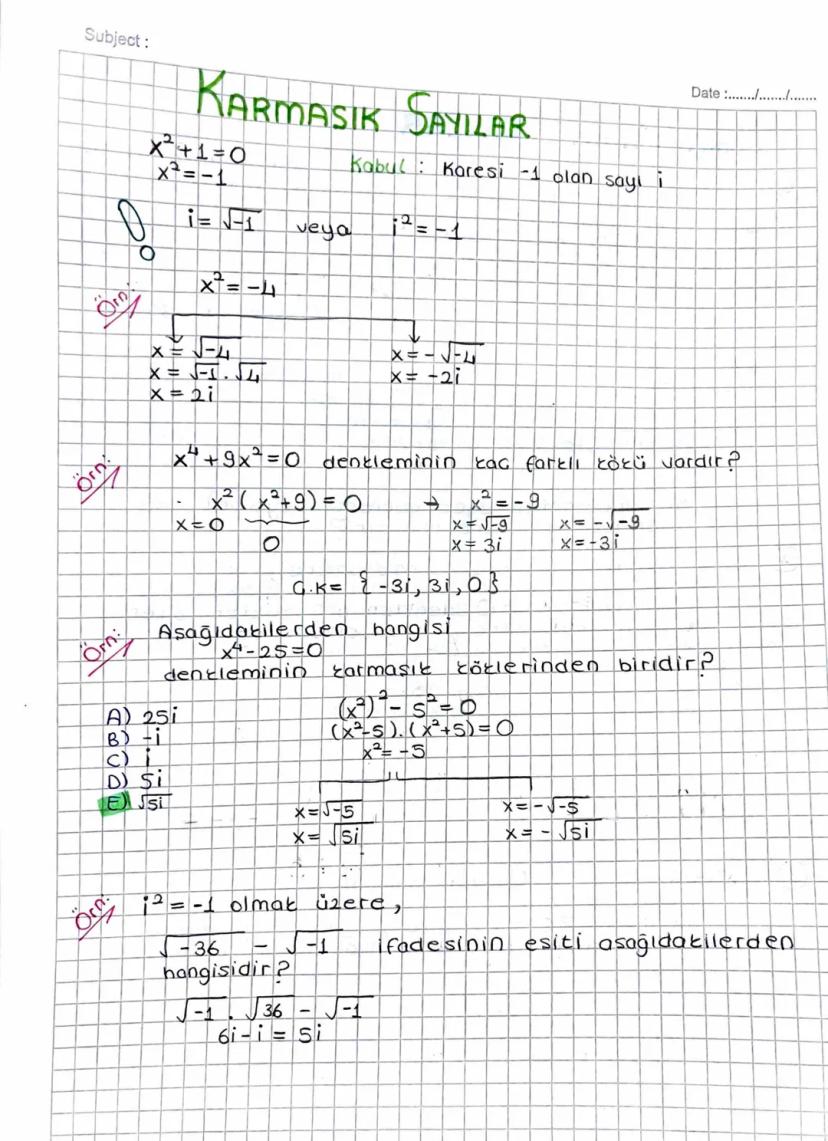 Subject :
Date :......./......./.......
KARMASIK SAYILAR
x²+1=0
x²=-1
Kabul : Karesi -1 olan sayı i
i= √-1 veya i²=-1
Örn:
x²=-4
x= √-4
x= √-1 . √4
x= 2i
x= -√-4
x= -2i
Örn:
x⁴+9x²=0 denkleminin kac farklı kökü vardır?
x²(x²+9)=0 → x²=-9
x=0
0
x=√-9
x= 3i
x= -√-9
x=-3i
G.K= {-3i, 3i, 0}
Örn:
Asağıdakilerden hangisi
x⁴-25=0
denkleminin karmaşık köklerinden biridir?
A) 25i
B) -i
C) i
D) 5i
E) √5i
(x²)²- 5²=0
(x²-5).(x²+5)=0
x²=-5
x=√-5
x= √5i
x=-√-5
x= - √5i
Örn:
i²=-1 olmak üzere,
√-36 - √-1 ifadesinin esiti asağıdakilerden
hangisidir?
√-1 . √36 - √-1
6i-i = 5i